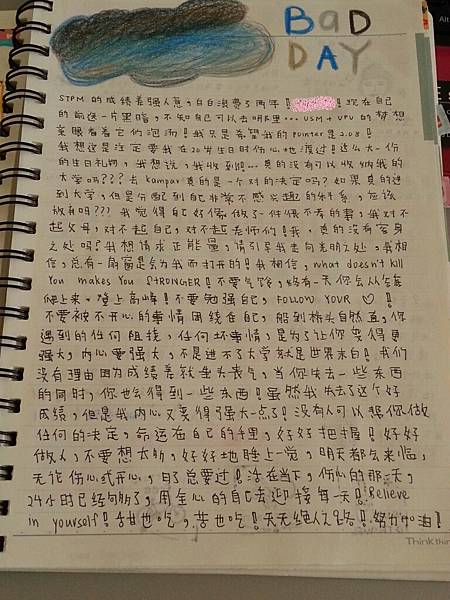 BaD
DAY
STPM 的成绩差强人意,白白浪费了两年! 现在自己
的前途一片黑暗,不知自己可以去哪里… USM + UPU 的梦想
要眼看着它们泡汤!我只是希望我的 pointer 是 2.08!
我想这是注定要我在20岁生日时伤心地渡过!这么大一份
的生日礼物,我想说,我收到啦… 真的没有可以收纳我的
大学吗???去 kampar 真的是一个对的决定吗?如果真的进
到大学,但是分配到自己非常不感兴趣的科系,应该
放弃吗???我觉得自己好像做了一件很不孝的事,我对不
起父母,对不起自己,对不起老师们!我,真的没有容身
之处吗?我想请求正能量,请引导我走向光明之处,我相
信,总有一扇窗是会为我而打开的!我相信,what doesn't kill
You makes You STRONGER!不要气馁,终有一天你会从谷底
爬上来,登上高峰!不要勉强自己,FOLLOW YOUR ♡!
不要被不开心的事情困绕在自己,船到桥头自然直,你
遇到的任何阻挠,任何坏事情,是为了让你变得更
强大,内心要强大,不是进不了大学就是世界末日!我们
没有理由因为成绩差就垂头丧气,当你失去一些东西
的同时,你也会得到一些东西!虽然我失去了这个好
成绩,但是我内心又变得强大一点了!没有人可以跟你做
任何的决定,命运在自己的手里,好好把握!好好
做人,不要想太多,好好地睡上一觉,明天都会来临,
无论伤心或开心,日子总要过!活在当下,伤心的那一天,
24小时已经够了,用全心的自己去迎接每一天!Believe
in yourself!甜也吃,苦也吃!天无绝人之路!努力加油!
Think